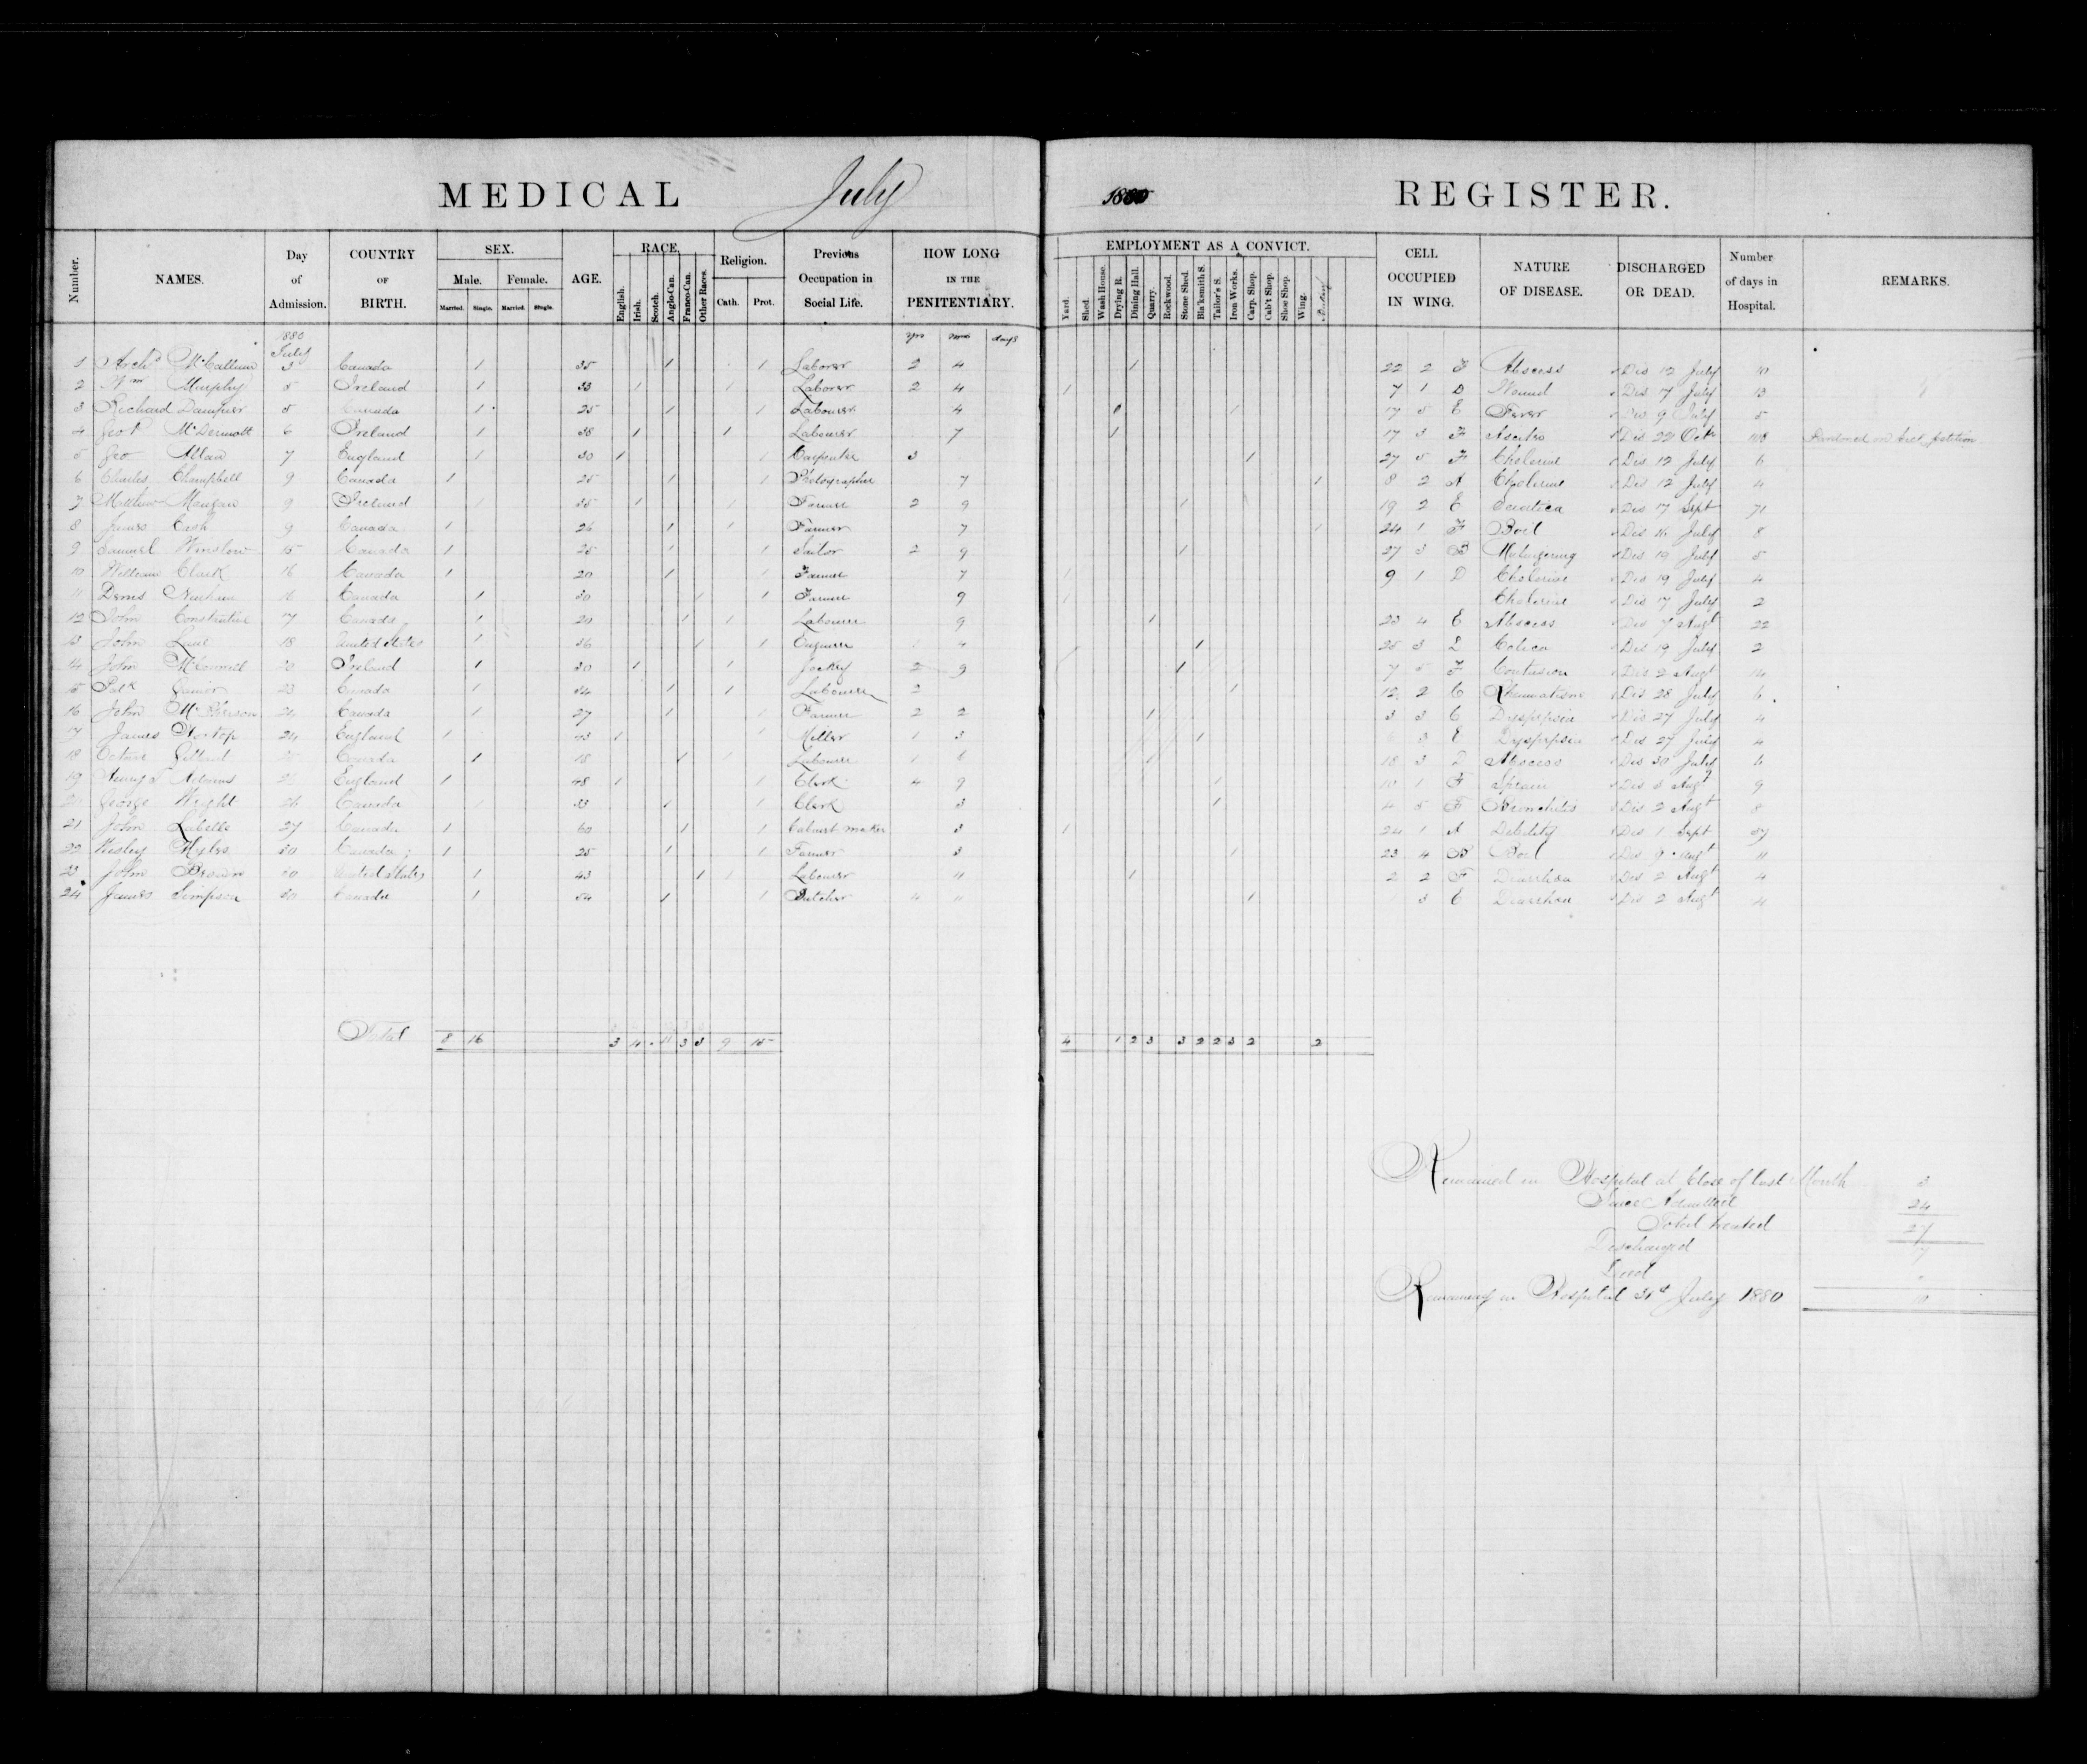 MEDICAL July 1880 REGISTER.
Number. NAMES. Day of Admission. COUNTRY OF BIRTH. SEX. Male. Married. Single. Female. Married. Single. AGE. RACE. English. Irish. Scotch. Anglo-Can. Franco-Can. Other Races. Religion. Cath. Prot. Previous Occupation in Social Life. HOW LONG IN THE PENITENTIARY. EMPLOYMENT AS A CONVICT. Yard. Shed. Wash House. Drying R. Dining Hall. Quarry. Rockwood. Stone Shed. Bla'ksmith S. Tailor's S. Iron Works. Carp. Shop. Cab't Shop. Shoe Shop. Wing. CELL OCCUPIED IN WING. NATURE OF DISEASE. DISCHARGED OR DEAD. Number of days in Hospital. REMARKS.
1880 July yrs mos days
1 Archd McCallum 3 Canada 1 35 1 1 Laborer 2 4 1 22 2 F Abscess Dis 12 July 10
2 Wm Murphy 5 Ireland 1 33 1 1 Laborer 2 4 1 7 1 D Wound Dis 17 July 13
3 Richard Dampier 5 Canada 1 25 1 1 Labourer 4 1 17 5 E Fever Dis 9 July 5
4 McDermott 6 Ireland 1 38 1 1 Labourer 7 1 17 3 F Ascites Dis 22 Oct 108 Pardoned on petition
5 Geo Allan 7 England 1 30 1 1 Carpenter 3 1 27 5 F Cholerine Dis 12 July 6
6 Charles Champbell 9 Canada 1 25 1 1 Photographer 7 1 8 2 A Cholerine Dis 12 July 4
7 Matthew Mangan 9 Ireland 1 35 1 1 Farmer 2 9 1 19 2 E Sciatica Dis 17 Sept 71
8 James Cash 9 Canada 1 26 1 1 Farmer 7 1 24 1 F Boil Dis 16 July 8
9 Samuel Winslow 15 Canada 1 25 1 1 Sailor 2 9 1 27 3 B Malingering Dis 19 July 5
10 William Clark 16 Canada 1 20 1 1 Farmer 7 1 9 1 D Cholerine Dis 19 July 4
11 16 Canada 1 30 1 1 Farmer 9 1 Cholerine Dis 17 July 2
12 John Constantine 17 Canada 1 20 1 1 Labourer 9 1 23 4 E Abscess Dis 7 Augt 22
13 John Lane 18 United States 1 36 1 1 Engineer 1 25 3 Colica Dis 19 July 2
14 John 20 Ireland 1 30 1 1 Jockey 2 9 1 7 5 F Contusion Dis 2 Augt 14
15 Patk 23 Canada 1 34 1 1 Labourer 2 1 12 2 C Rheumatism Dis 28 July 6
16 John McPherson 24 Canada 1 27 1 1 Farmer 2 2 1 3 3 C Dyspepsia Dis 27 July 4
17 James 24 England 1 43 1 1 Miller 1 3 1 3 E Dyspepsia Dis 27 July 4
18 Octave Gilbert Canada 1 18 1 1 Labourer 1 6 1 18 3 D Abscess Dis 30 July 6
19 Henry Adams England 1 48 1 1 Clerk 4 9 1 10 1 F Sprain Dis 3 Augt 9
20 George Wright 26 Canada 1 33 1 1 Clerk 3 1 4 5 F Bronchitis Dis 2 Augt 8
21 John Labelle 27 Canada 1 60 1 1 Cabinet maker 3 1 24 1 A Debility Dis 1 Sept 37
22 Wesley Myles 30 Canada 1 25 1 1 Farmer 3 1 23 4 B Boil Dis 9 Augt 11
23 John Brown 30 United States 1 43 1 1 Labourer 4 1 2 2 F Diarrhœa Dis 2 Augt 4
24 James Simpson 30 Canada 1 54 1 1 Butcher 4 11 1 3 E Diarrhœa Dis 2 Augt 4
Total 8 16 3 4 11 3 3 9 15 4 1 2 3 3 2 2 3 2 2
Remained in Hospital at Close of last Month 3
Since Admitted 24
Total treated 27
Discharged 17
Died
Remaining in Hospital 31st July 1880 10